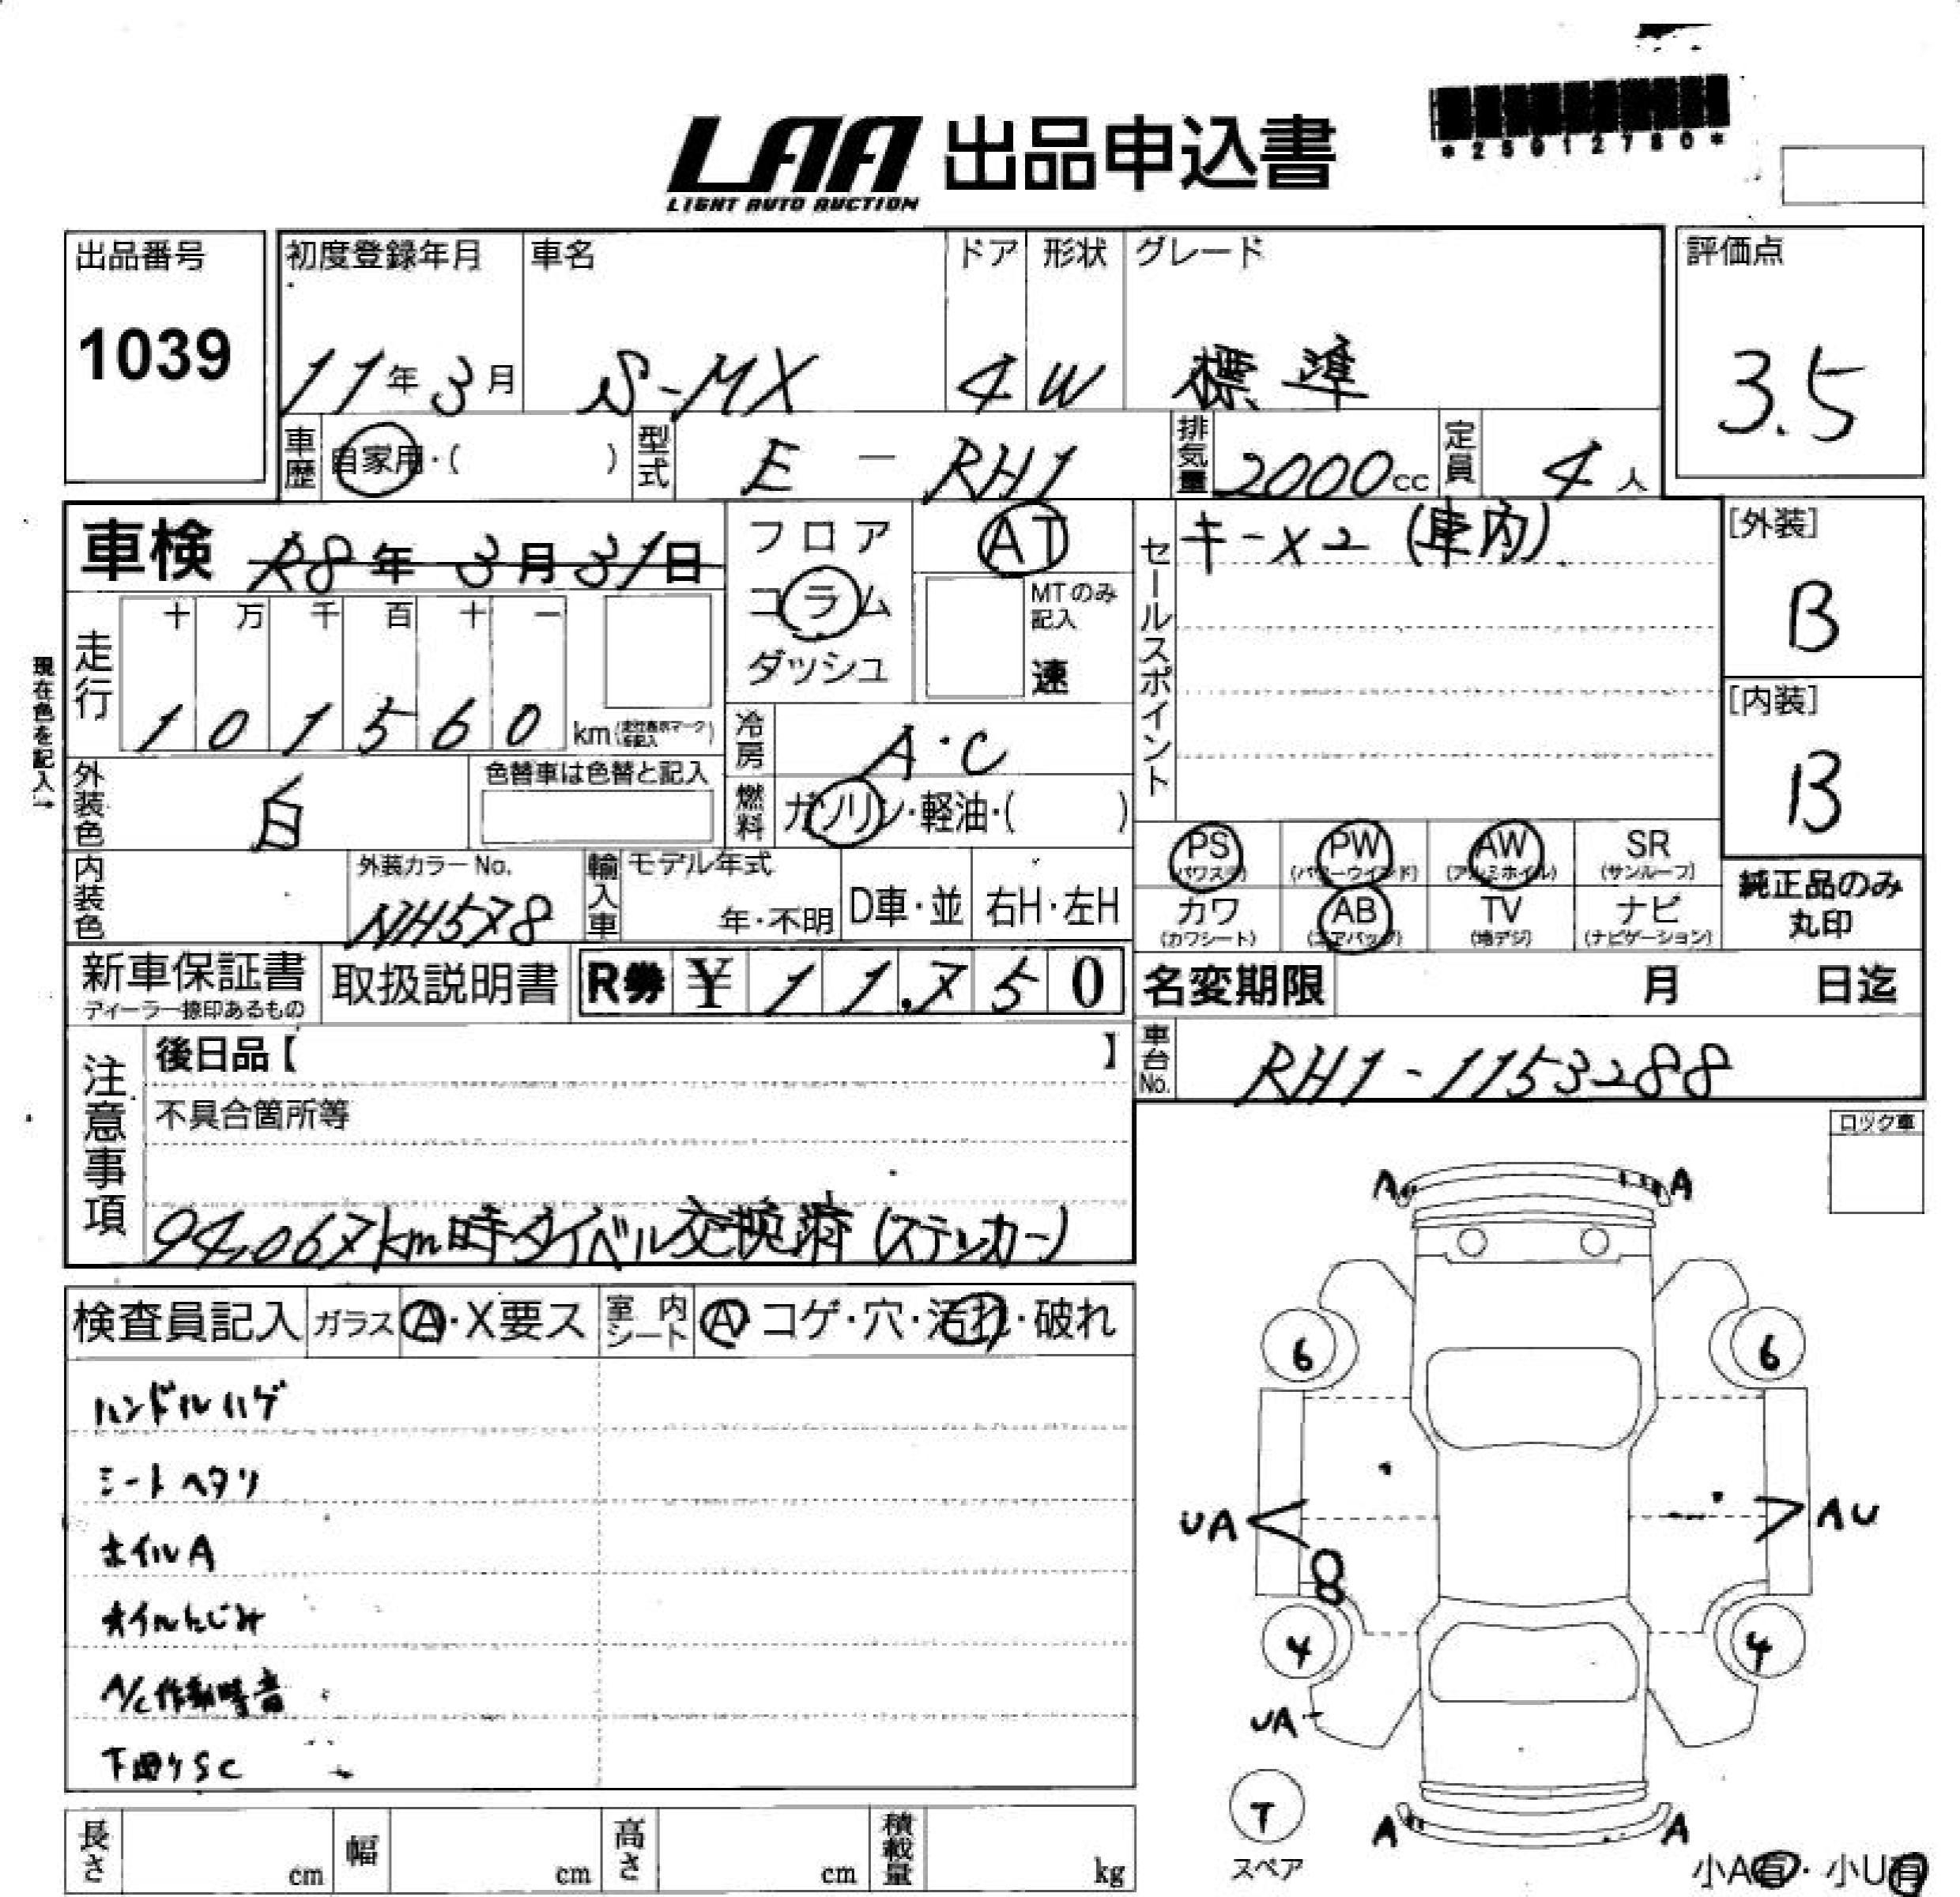 LAA 出品申込書
LIGHT AUTO AUCTION
*25012780*
出品番号
1039
初度登録年月
11年3月
車名
S-MX
ドア
4
形状
W
グレード
標準
評価点
3.5
車歴 自家用・( )
型式 E - RH1
排気量 2000cc
定員 4人
車検 R8年3月31日
フロア
コラム
ダッシュ
AT
MTのみ記入
速
セールスポイント
キーX2 (車内)
[外装]
B
[内装]
B
現在色を記入→
走行
十 万 千 百 十 一
1 0 1 5 6 0 km
冷房 A・C
外装色 白
色替車は色替と記入
燃料 ガソリン・軽油・( )
内装色
外装カラーNo.
NH578
輸入車
モデル年式
年・不明
D車・並
右H・左H
PS (パワステ)
PW (パワーウインド)
AW (アルミホイル)
SR (サンルーフ)
カワ (カワシート)
AB (エアバッグ)
TV (地デジ)
ナビ (ナビゲーション)
純正品のみ
丸印
新車保証書
ディーラー捺印あるもの
取扱説明書
R券 ¥ 11,750
名変期限 月 日迄
注意事項
後日品【 】
車台No. RH1-1153288
不具合箇所等
94,067km時タイベル交換済(ステッカー)
ロック車
検査員記入
ガラス A・X要ス
室内シート A コゲ・穴・汚れ・破れ
ハンドルハゲ
シートヘタリ
ホイルA
オイルにじみ
A/C作動時音
下廻りSC
A A
6 6
UA AU
8
4 4
UA
T
スペア
A A
小A有・小U有
長さ cm
幅 cm
高さ cm
積載量 kg